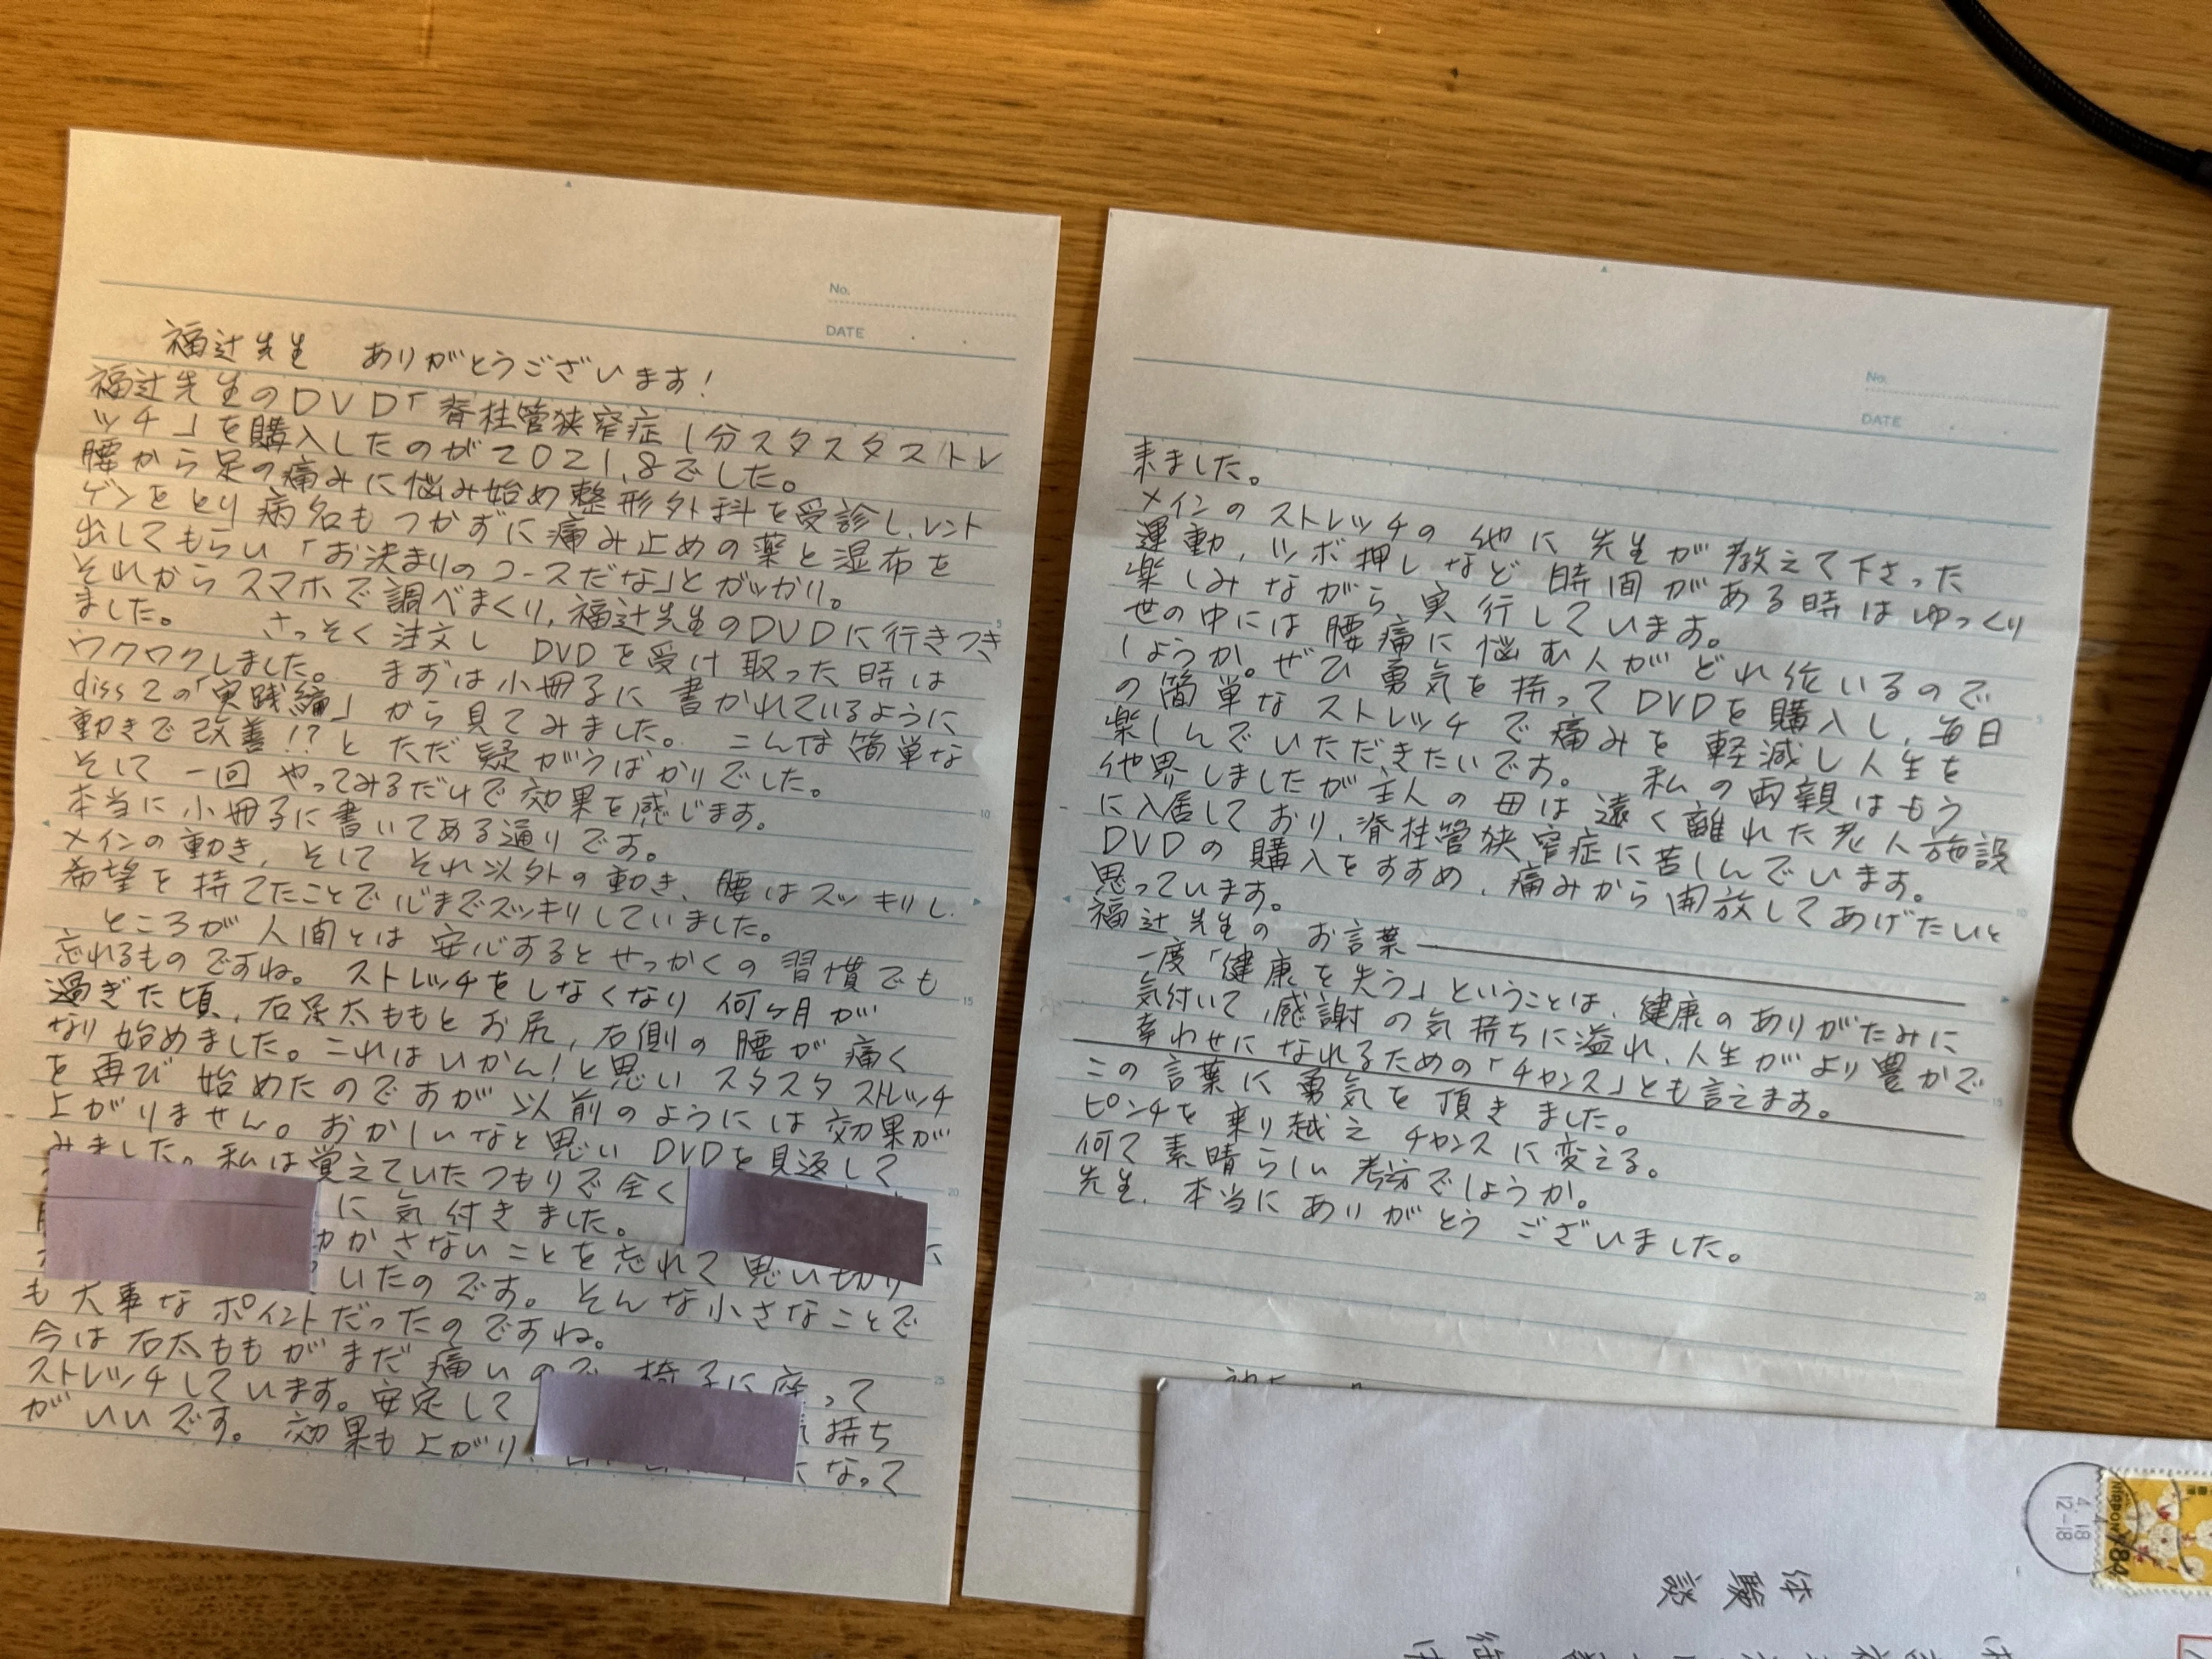 No.
DATE
福辻先生 ありがとうございます!
福辻先生のDVD「脊柱管狭窄症1分スタスタストレ
ッチ」を購入したのが2021.8でした。
腰から足の痛みに悩み始め整形外科を受診し、レント
ゲンをとり病名もつかずに痛み止めの薬と湿布を
出してもらい「お決まりのコースだな」とガッかり。
それからスマホで調べまくり、福辻先生のDVDに行きつき
ました。 さっそく注文し DVDを受け取った時は
ワクワクしました。 まずは小冊子に書かれているように
diss2の「実践編」から見てみました。 こんな簡単な
動きで改善!?とただ疑がうばかりでした。
そして一回やってみるだけで効果を感じます。
本当に小冊子に書いてある通りです。
メインの動き、そしてそれ以外の動き、腰はスッキリし、
希望を持てたことで心までスッキリしていました。
ところが人間とは安心するとせっかくの習慣でも
忘れるものですね。 ストレッチをしなくなり何ヶ月が
過ぎた頃、右足太ももとお尻、右側の腰が痛く
なり始めました。これはいかん!と思いスタスタストレッチ
を再び始めたのですが以前のようには効果が
上がりません。おかしいなと思いDVDを見返して
みました。私は覚えていたつもりで全く
に気付きました。
かさないことを忘れて思い切り
いたのです。そんな小さなことで
も大事なポイントだったのですね。
今は右太ももがまだ痛いので椅子に座って
ストレッチしています。安定して
持ち
がいいです。効果も上がり
なって
No.
DATE
来ました。
メインのストレッチの他に先生が教えて下さった
運動、ツボ押しなど時間がある時はゆっくり
楽しみながら実行しています。
世の中には腰痛に悩む人がどれ位いるので
しょうか。ぜひ勇気を持ってDVDを購入し、毎日
の簡単なストレッチで痛みを軽減し人生を
楽しんでいただきたいです。 私の両親はもう
他界しましたが主人の母は遠く離れた老人施設
に入居しており、脊柱管狭窄症に苦しんでいます。
DVDの購入をすすめ、痛みから開放してあげたいと
思っています。
福辻先生のお言葉
一度「健康を失う」ということは、健康のありがたみに
気付いて、感謝の気持ちに溢れ、人生がより豊かで
幸わせになれるための「チャンス」とも言えます。
この言葉に勇気を頂きました。
ピンチを乗り越えチャンスに変える。
何て素晴らしい考方でしょうか。
先生、本当にありがとうございました。
4.18
12-18
NIPPON
84
体験談